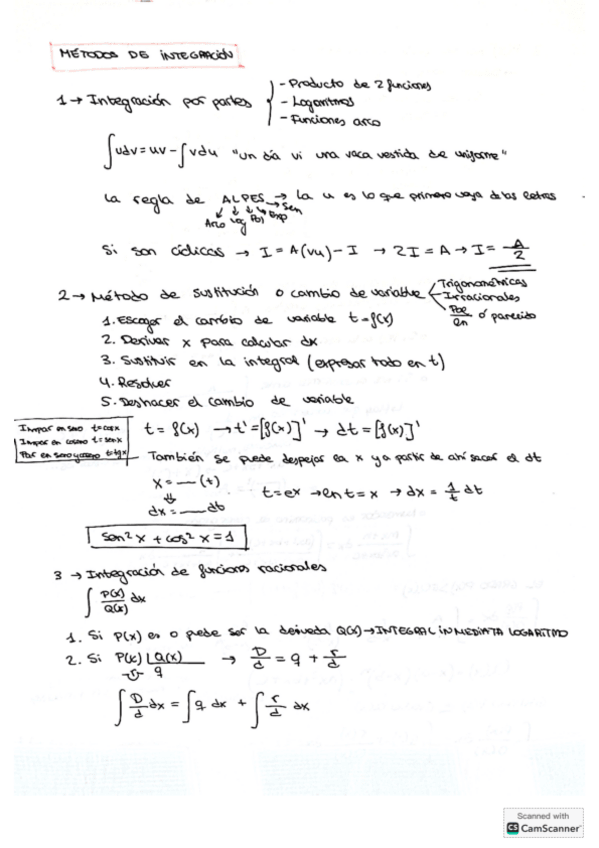 MÉTODOS DE INTEGRACIÓN
1 → Integración por partes
- Producto de 2 funciones
- Logaritmos
- Funciones arco
∫udv = uv - ∫vdu "un día vi una vaca vestida de uniforme"
La regla de ALPES → la u es lo que primero vaya de las letras
Arco Log Pol Exp Sen
Si son cíclicas → I = A(vu) - I → 2I = A → I = A/2
2 → Método de sustitución o cambio de variable
Trigonométricas
Irracionales
Poe/en ó parecido
1. Escoger el cambio de variable t = f(x)
2. Derivar x para calcular dx
3. Sustituir en la integral (expresar todo en t)
4. Resolver
5. Deshacer el cambio de variable
Impar en seno t=cosx
Impar en coseno t=senx
Par en seno y coseno t=tgx
t = f(x) → t' = [f(x)]' → dt = [f(x)]'
También se puede despejar la x y a partir de ahí sacar el dt
x = __ (t)
⇓
dx = ___ dt
t = ex → ln t = x → dx = 1/t dt
sen²x + cos²x = 1
3 → Integración de funciones racionales
∫ P(x)/Q(x) dx
1. Si P(x) es o puede ser la derivada Q(x) → INTEGRAL INMEDIATA LOGARITMO
2. Si P(x) | Q(x) → D/d = q + r/d
q
∫ D/d dx = ∫ q dx + ∫ r/d dx
Scanned with
CS CamScanner